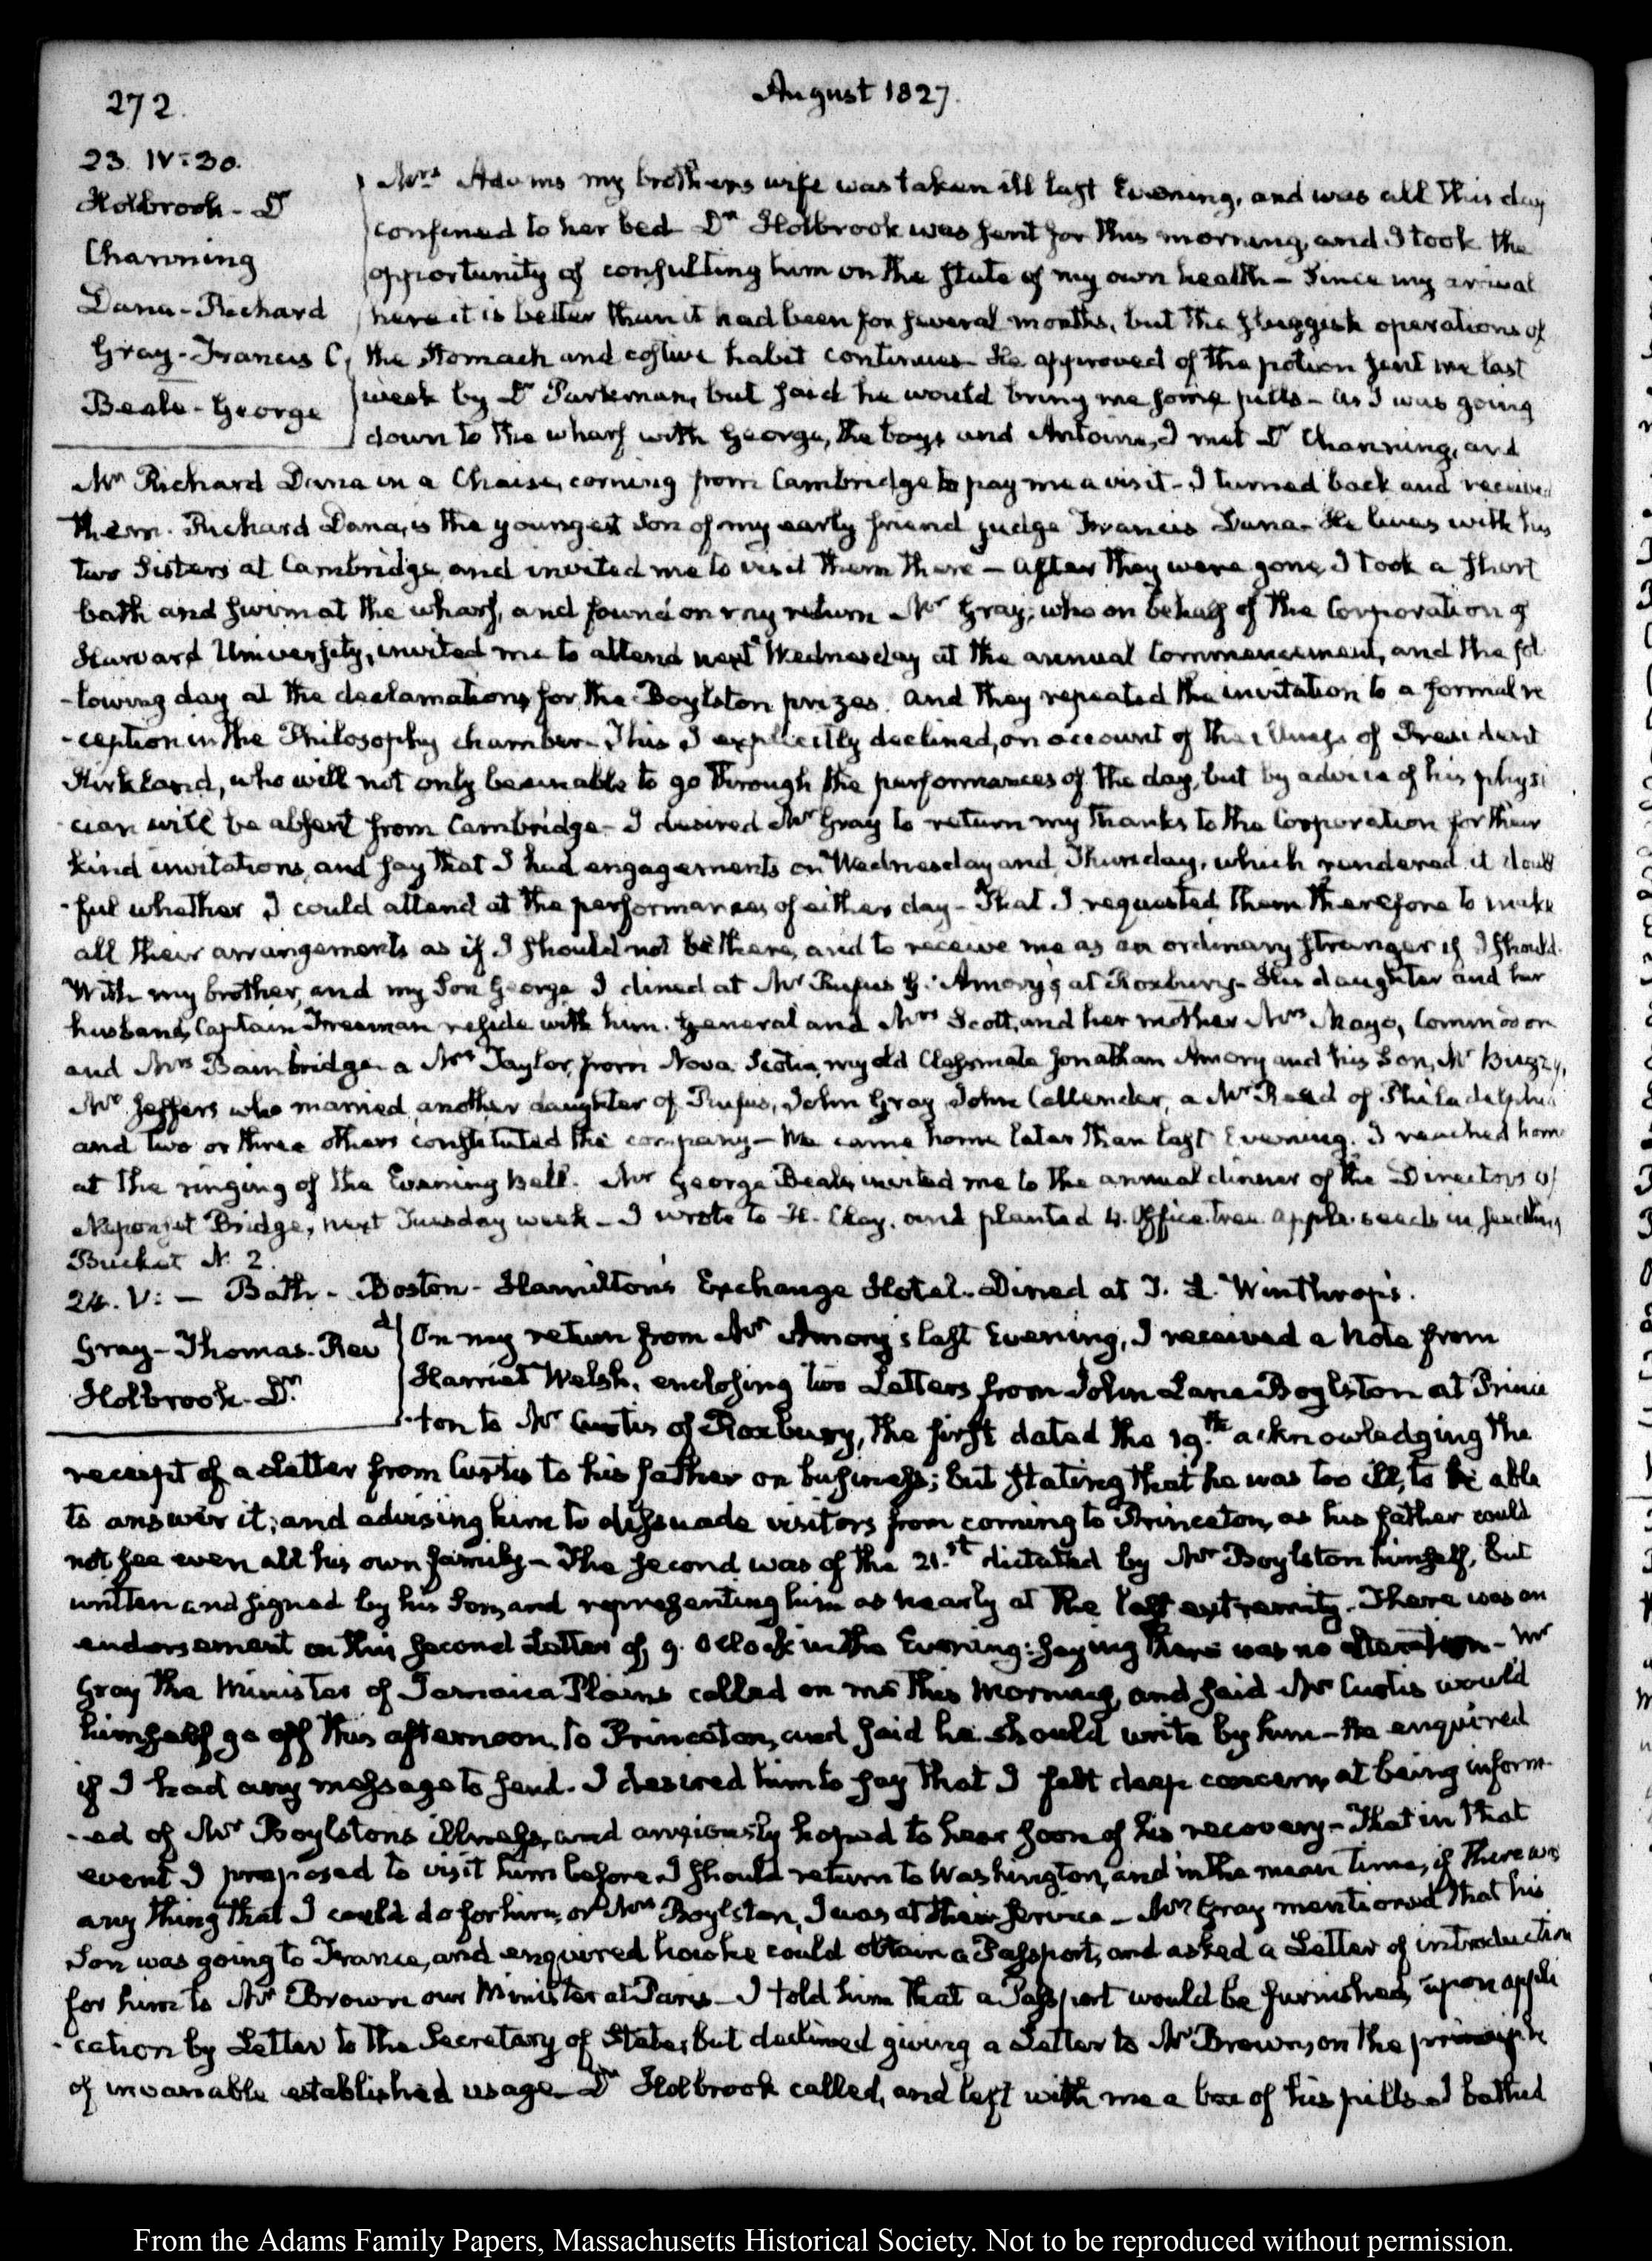 272.
August 1827.
23. IV:30.
Holbrook - Dr
Channing
Dana - Richard
Gray - Francis C.
Beale - George
Mrs Adams my brothers wife was taken ill last Evening, and was all this day
confined to her bed Dr Holbrook was sent for this morning, and I took the
opportunity of consulting him on the state of my own health - Since my arrival
here it is better than it had been for several months, but the sluggish operations of
the Stomach and costive habit continues - He approved of the potion sent me last
week by Dr Parkman, but said he would bring me some pills - As I was going
down to the wharf with George, the boys and Antoine, I met Dr Channing, and
Mr Richard Dana in a Chaise, coming from Cambridge to pay me a visit - I turned back and received
them. Richard Dana, is the youngest Son of my early friend judge Francis Dana - He lives with his
two Sisters at Cambridge and invited me to visit them there - After they were gone, I took a short
bath and swim at the wharf, and found on my return Mr Gray; who on behalf of the Corporation of
Harvard University, invited me to attend next Wednesday at the annual Commencement, and the fol
-lowing day at the declamations for the Boylston prizes. And they repeated the invitation to a formal re
-ception in the Philosophy chamber. This I explicitly declined, on account of the illness of President
Kirkland, who will not only be unable to go through the performances of the day, but by advice of his physi
cian will be absent from Cambridge - I desired Mr Gray to return my thanks to the Corporation for their
kind invitations, and say that I had engagements on Wednesday and Thursday, which rendered it doubt
-ful whether I could attend at the performances of either day - That I requested them therefore to make
all their arrangements as if I should not be there, and to receive me as an ordinary stranger if I should.
With my brother, and my Son George I dined at Mr Rufus G. Amory's at Roxbury - His daughter and her
husband, Captain Freeman reside with him. General and Mrs Scott, and her mother Mrs Mayo, Commodore
and Mrs Bainbridge a Mrs Taylor, from Nova Scotia, my old Classmate Jonathan Amory and his Son, Mr
Mr Jeffers who married another daughter of Rufus, John Gray, John Callender, a Mr Read of Philadelphia
and two or three others constituted the company - We came home later than last Evening. I reached home
at the ringing of the Evening bell. Mr George Beale, invited me to the annual dinner of the Directors of
Neponset Bridge, next Tuesday week - I wrote to H. Clay, and planted 4. Office tree apple seeds in seedling
Bucket N. 2.
24. V: — Bath - Boston - Hamilton's Exchange Hotel. Dined at T. L. Winthrop's.
Gray - Thomas. Revd
Holbrook. Dr.
On my return from Mr Amory's last Evening, I received a Note from
Harriet Welsh, enclosing two Letters from John Lane Boylston at Prince
-ton to Mr Curtis of Roxbury, the first dated the 19.th acknowledging the
receipt of a Letter from Curtis to his father on business; but stating that he was too ill, to be able
to answer it; and advising him to dissuade visitors from coming to Princeton, as his father could
not see even all his own family - The second was of the 21.st dictated by Mr Boylston himself, but
written and signed by his Son, and representing him as nearly at the last extremity. There was an
endorsement on this second Letter of, 9. O'Clock in the Evening: saying there was no alteration - Mr
Gray the Minister of Jamaica Plains called on me this Morning, and said Mr Curtis would
himself go off this afternoon, to Princeton, and said he should write by him - He enquired
if I had any message to send. I desired him to say that I felt deep concern, at being inform
-ed of Mr Boylstons illness, and anxiously hoped to hear soon of his recovery - That in that
event I proposed to visit him before I should return to Washington, and in the mean time, if there was
any thing that I could do for him, or Mrs Boylston, I was at their service - Mr Gray mentioned that his
Son was going to France, and enquired how he could obtain a Passport, and asked a Letter of introduction
for him to Mr Brown our Minister at Paris - I told him that a Passport would be furnished, upon appli
-cation by Letter to the Secretary of State, but declined giving a Letter to Mr Brown, on the principle
of invariable established usage - Dr Holbrook called, and left with me a box of his pills - I bathed
From the Adams Family Papers, Massachusetts Historical Society. Not to be reproduced without permission.